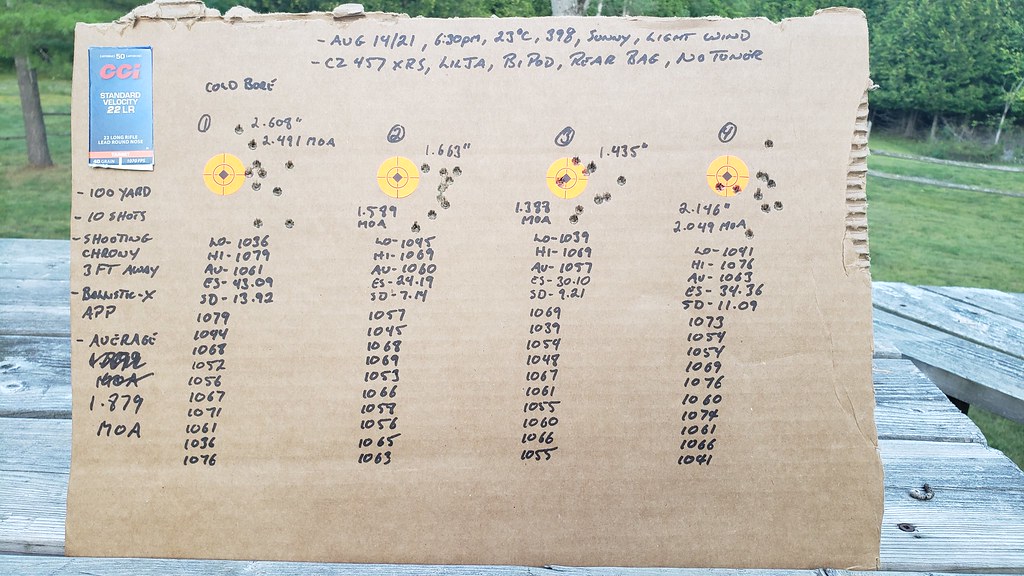 - AUG 14/21, 6:30PM, 23°C, 398, SUNNY, LIGHT WIND
- CZ 457 XRS, LILJA, BIPOD, REAR BAG, NO TUNER
50
CCI
STANDARD
VELOCITY
22 LR
22 LONG RIFLE
LEAD ROUND NOSE
40 GRAIN
1070 FPS
- 100 YARD
- 10 SHOTS
- SHOOTING
CHRONY
3 FT AWAY
- BALLISTIC-X
APP
- AVERAGE
MOA
1.879
MOA
COLD BORE
1
2.608"
2.491 MOA
LO- 1036
HI- 1079
AU- 1061
ES- 43.09
SD- 13.92
1079
1044
1068
1052
1056
1067
1071
1061
1036
1076
2
1.663"
1.589
MOA
LO- 1045
HI- 1069
AU- 1060
ES- 24.19
SD- 7.14
1057
1045
1068
1069
1053
1066
1058
1056
1065
1063
3
1.435"
1.388
MOA
LO- 1039
HI- 1069
AU- 1057
ES- 30.10
SD- 9.21
1069
1039
1054
1048
1067
1061
1055
1060
1066
1055
4
2.146"
2.049 MOA
LO- 1041
HI- 1076
AU- 1063
ES- 34.36
SD- 11.09
1073
1054
1054
1069
1076
1060
1074
1061
1066
1041